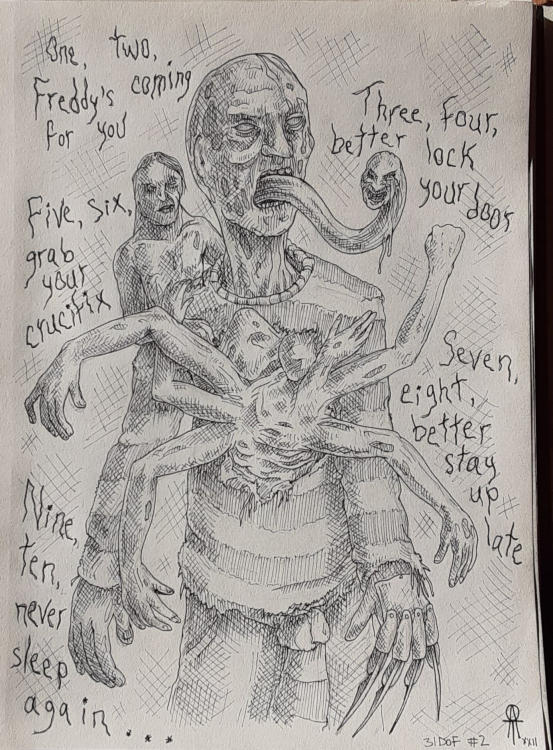 One, two,
Freddy's coming
for you
Three, four,
better lock
your door
Five, six,
grab
your
crucifix
Seven,
eight,
better
stay
up
late
Nine,
ten,
never
sleep
again...
31DOF #2
XXII